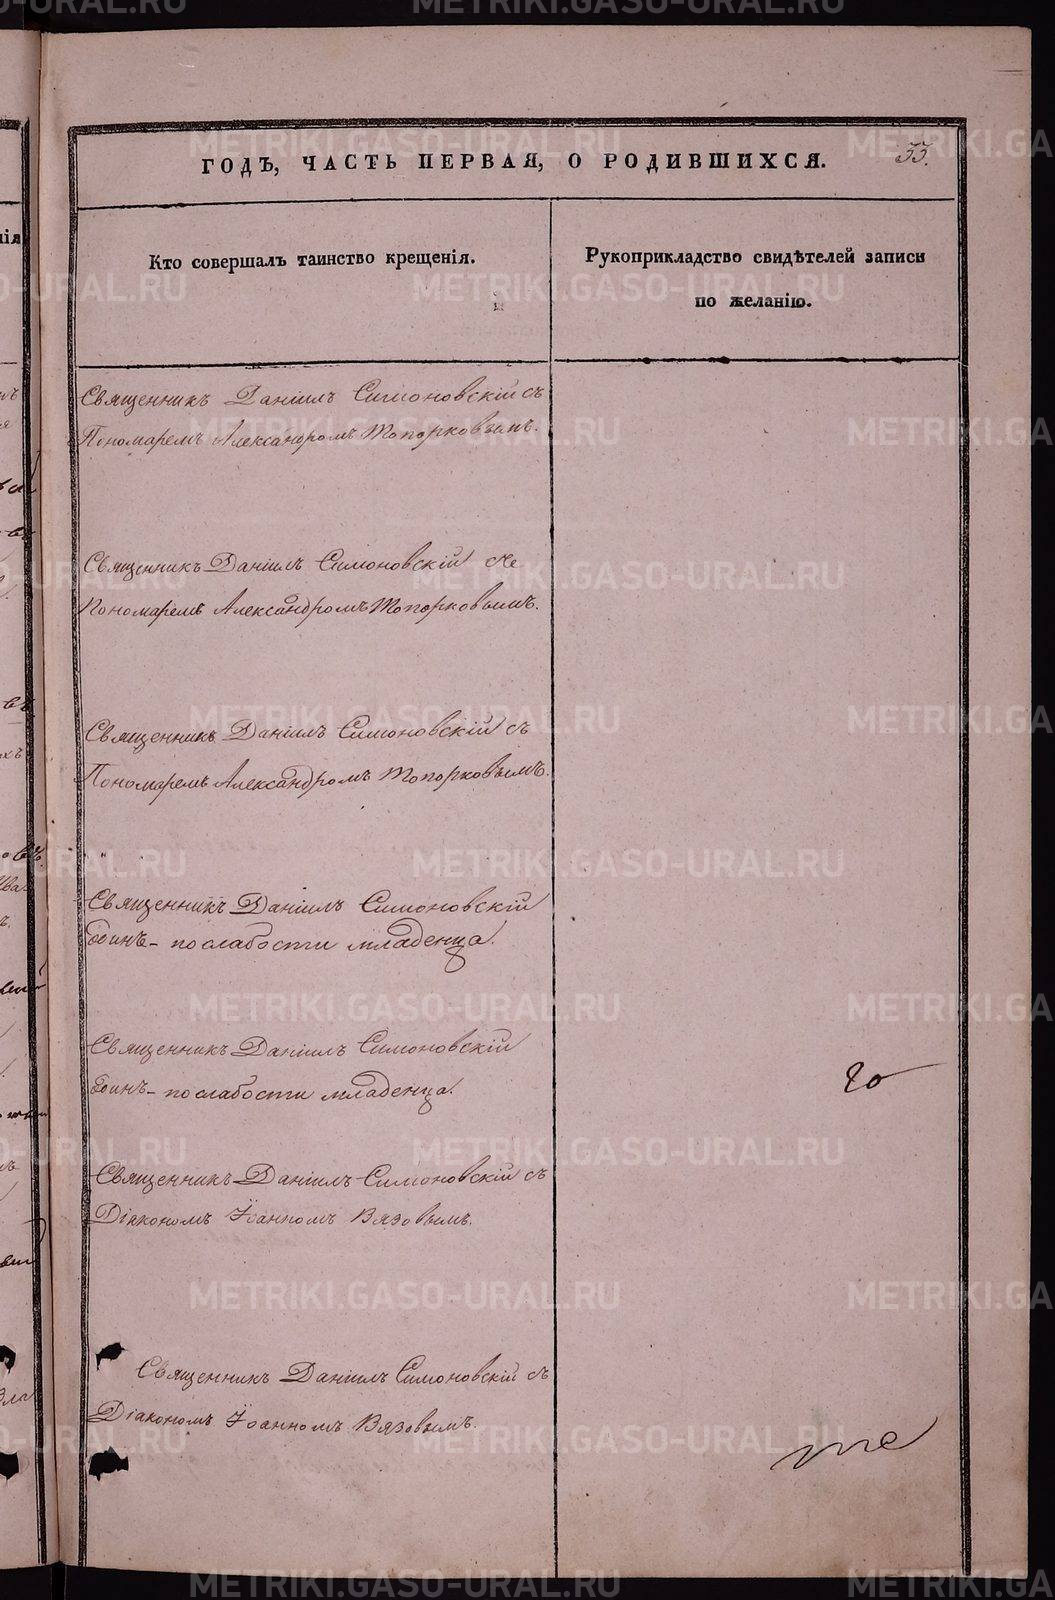 ГОДЪ, ЧАСТЬ ПЕРВАЯ, О РОДИВШИХСЯ.
33.
Кто совершалъ таинство крещенія.
Рукоприкладство свидѣтелей записи
по желанію.
Священникъ Даніилъ Симоновскій съ
Пономаремъ Александромъ Топорковымъ.
Священникъ Даніилъ Симоновскій съ
Пономаремъ Александромъ Топорковымъ.
Священникъ Даніилъ Симоновскій съ
Пономаремъ Александромъ Топорковымъ.
Священникъ Даніилъ Симоновскій
одинъ – по слабости младенца.
Священникъ Даніилъ Симоновскій
одинъ – по слабости младенца.
Священникъ Даніилъ Симоновскій съ
Діакономъ Іоанномъ Вязовымъ.
Священникъ Даніилъ Симоновскій съ
Діакономъ Іоанномъ Вязовымъ.
METRIKI.GASO-URAL.RU